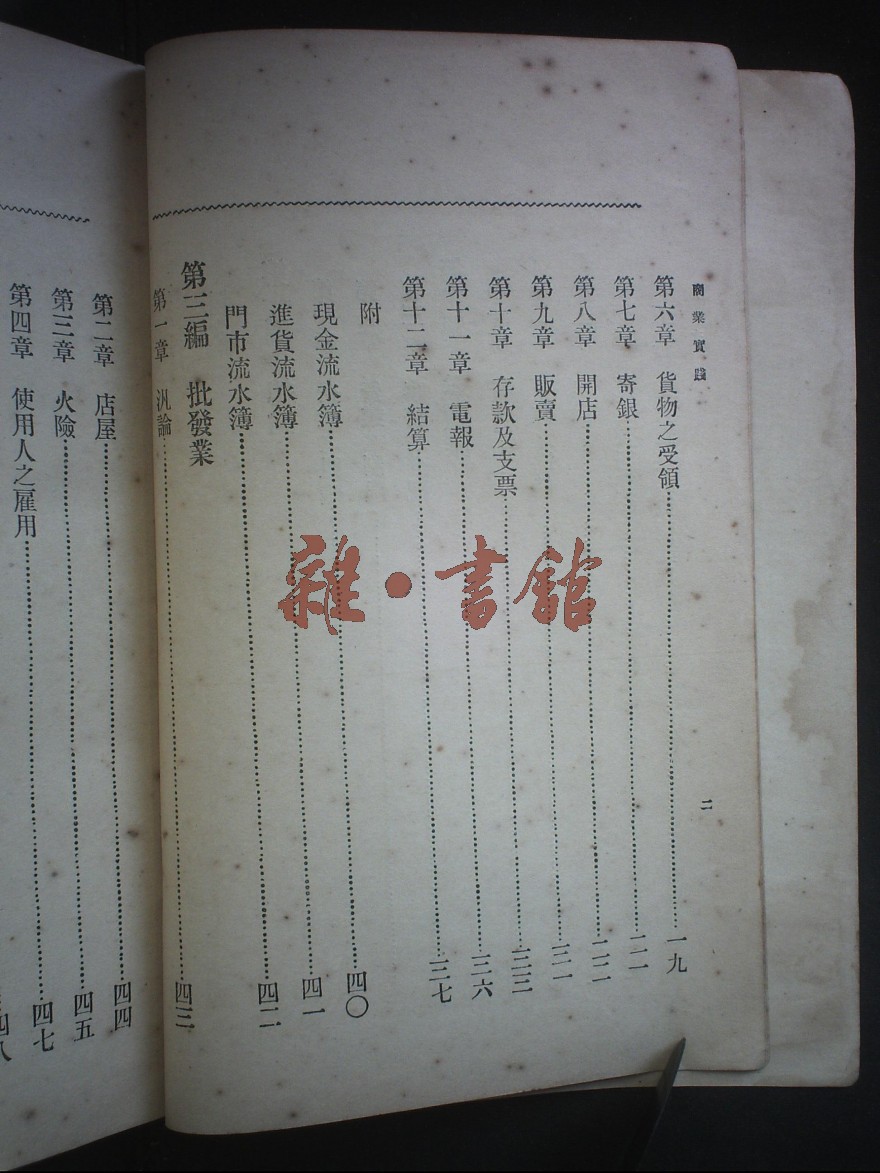 商業實踐
二
第六章 貨物之受領 一九
第七章 寄銀 二一
第八章 開店 二二
第九章 販賣 三一
第十章 存款及支票 三三
第十一章 電報 三六
第十二章 結算 三七
附
現金流水簿 四〇
進貨流水簿 四一
門市流水簿 四二
第三編 批發業
第一章 汎論 四三
第二章 店屋 四四
第三章 火險 四五
第四章 使用人之雇用 四七
四八
雜·書館